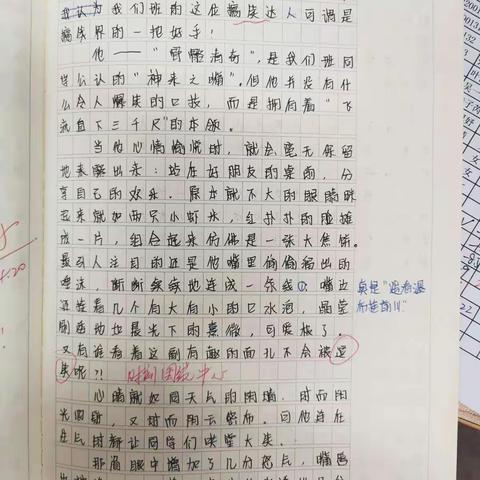 我认为我们班的这位搞笑达人可谓是
搞笑界的一把好手!
他——"骨骼清奇",是我们班同
学公认的"神来之嘴"。但他并没有什
么令人爆笑的口技,而是拥有着"飞
流直下三千尺"的本领。
当他心情愉悦时,就会毫无保留
地表露出来:站在好朋友的桌前,分
享自己的欢乐。原本就不大的眼睛眯
起来就如两只小虾米,红扑扑的脸摊
成一片,组合起来仿佛是一张大焦饼。
最引人注目的还是他嘴里偷偷溜出的
唾沫,断断续续地连成一条线,嘴边
还挂着几个有大有小的口水泡,晶莹
剔透地
真是"遥看瀑
布挂前川"
可爱极了。
又有谁看着这副有趣的面孔不会被逗
笑呢?!
时刻围绕中心
心情就如同天气的阴晴,时而阳
光明媚,又时而阴云密布。可他连在
生气时都让同学们哄堂大笑。
那眉眼中增加了几分怒气,嘴唇